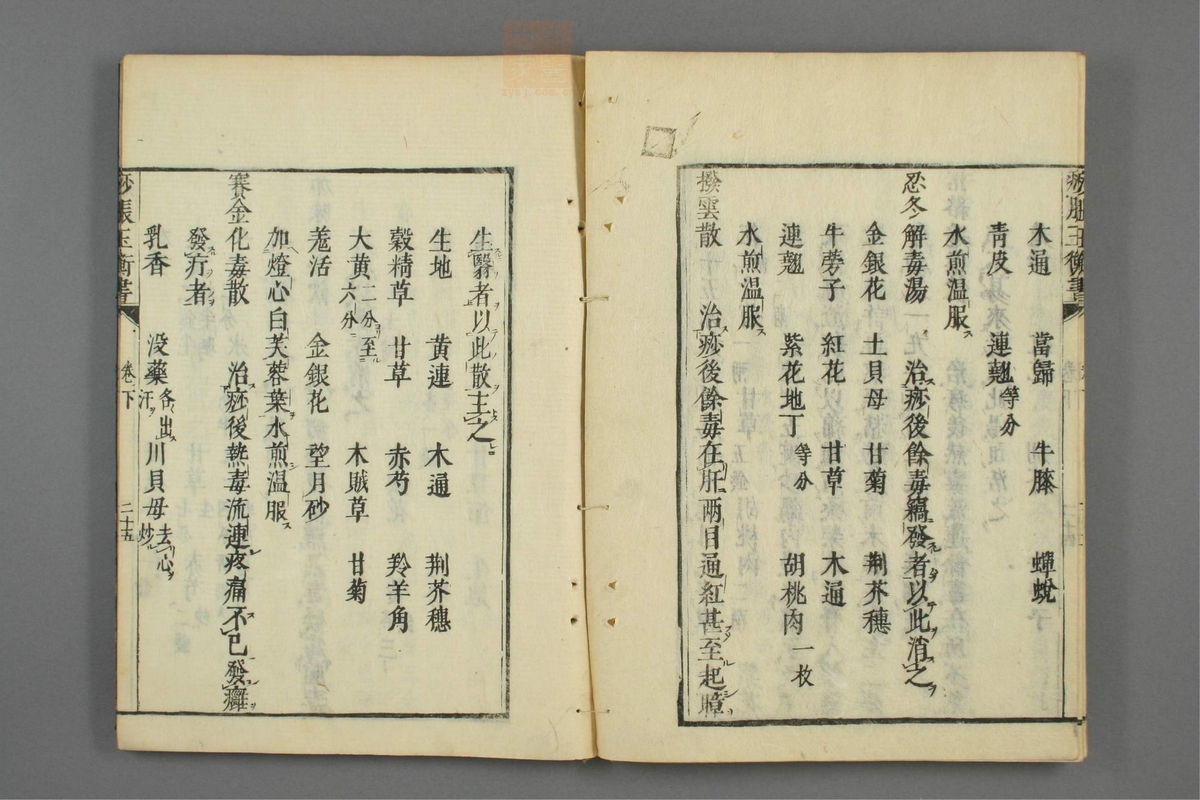 痧脹玉衡書
木通 當歸 牛膝 蟬蛻
靑皮 連翹等分
水煎温服ス
忍冬解毒湯 治痧後餘毒縞發者以此消之
金銀花 土貝母 甘菊 荆芥穗
牛蒡子 紅花 甘草 木通
連翹 紫花地丁等分 胡桃肉一枚
水煎温服ス
撥雲散 治痧後餘毒在肝兩目通紅甚至起瞕
生翳者以此散主之
生地 黄連 木通 荆芥穗
穀精草 甘草 赤芍 羚羊角
大黄二分至六分 木賊草 甘菊
羗活 金銀花 望月砂
加燈心白芙蓉葉水煎温服ス
賽金化毒散 治痧後熱毒流連疼痛不已發癰
發疔者
乳香 没藥各出汗 川貝母去心炒
痧脹玉衡書 卷下 二十五